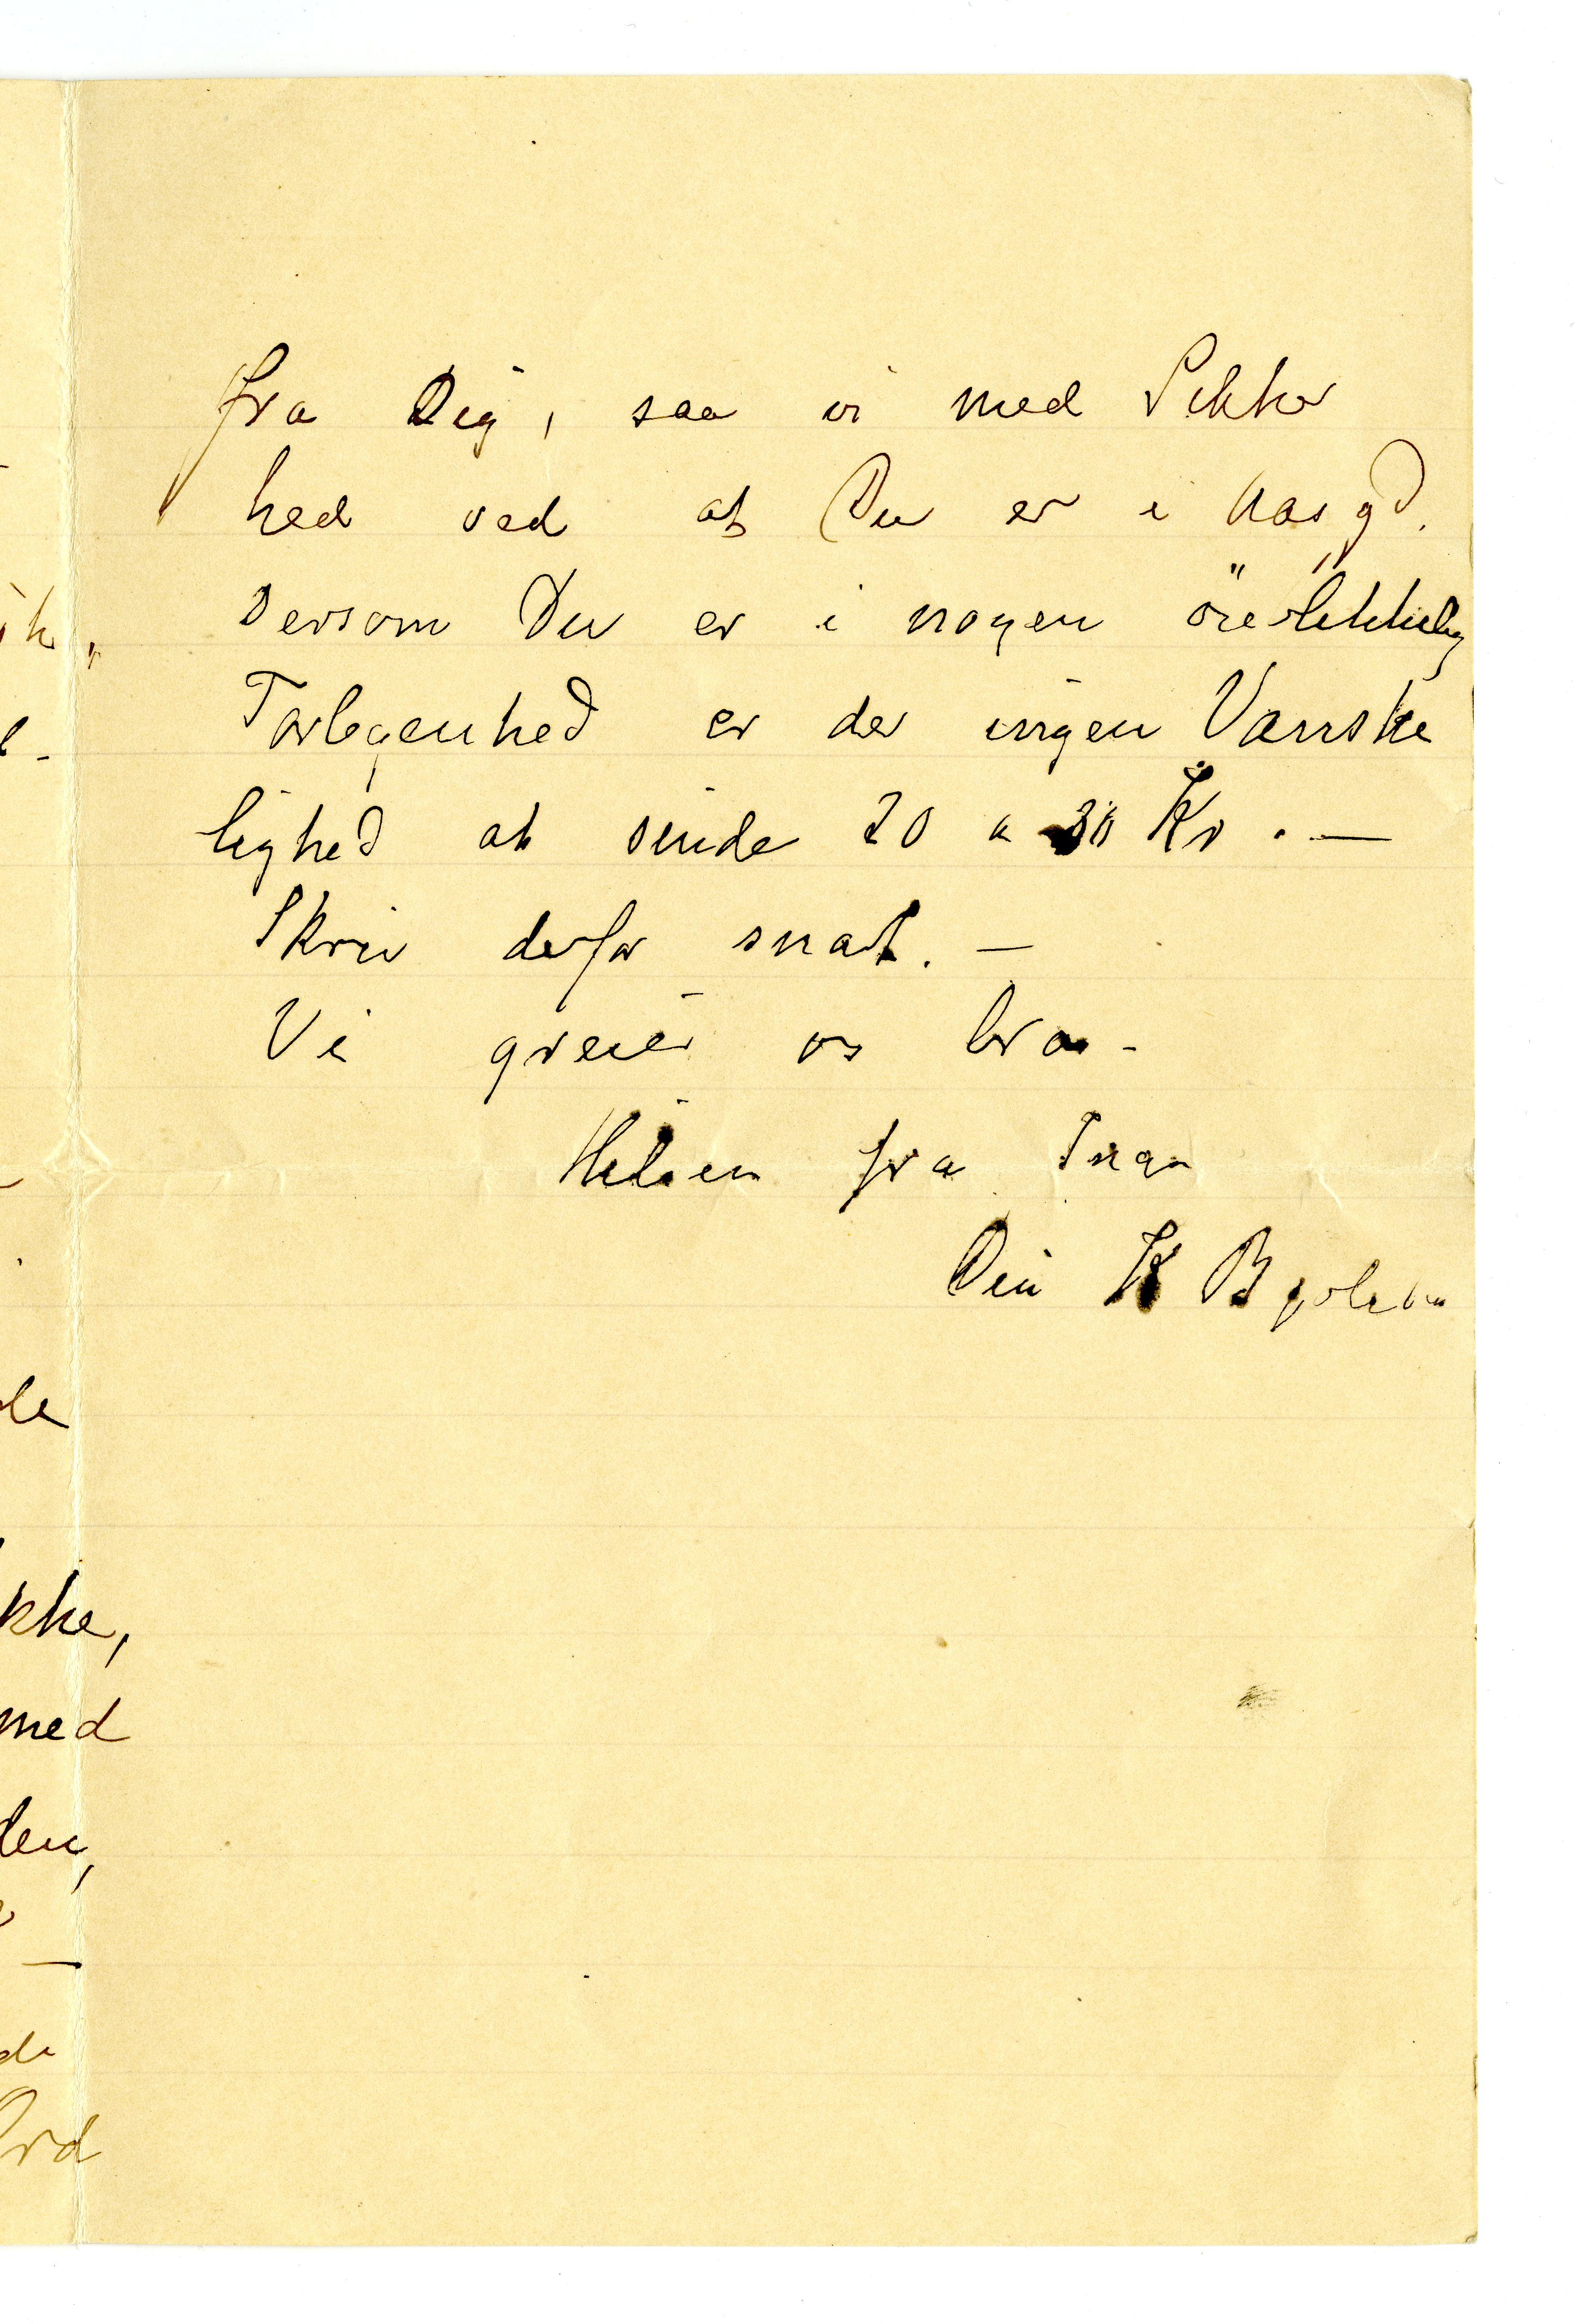 fra Dig, saa vi med Sikker
hed ved at Du er i
Dersom Du er i nogen
Forlegenhed er der ingen Vanske
lighed at sende 20 a 30 Kr. —
Skriv derfor snart. —
Vi greier os bra -
Hilsen fra Inga
Din K B
kke,
med
den,
Ord